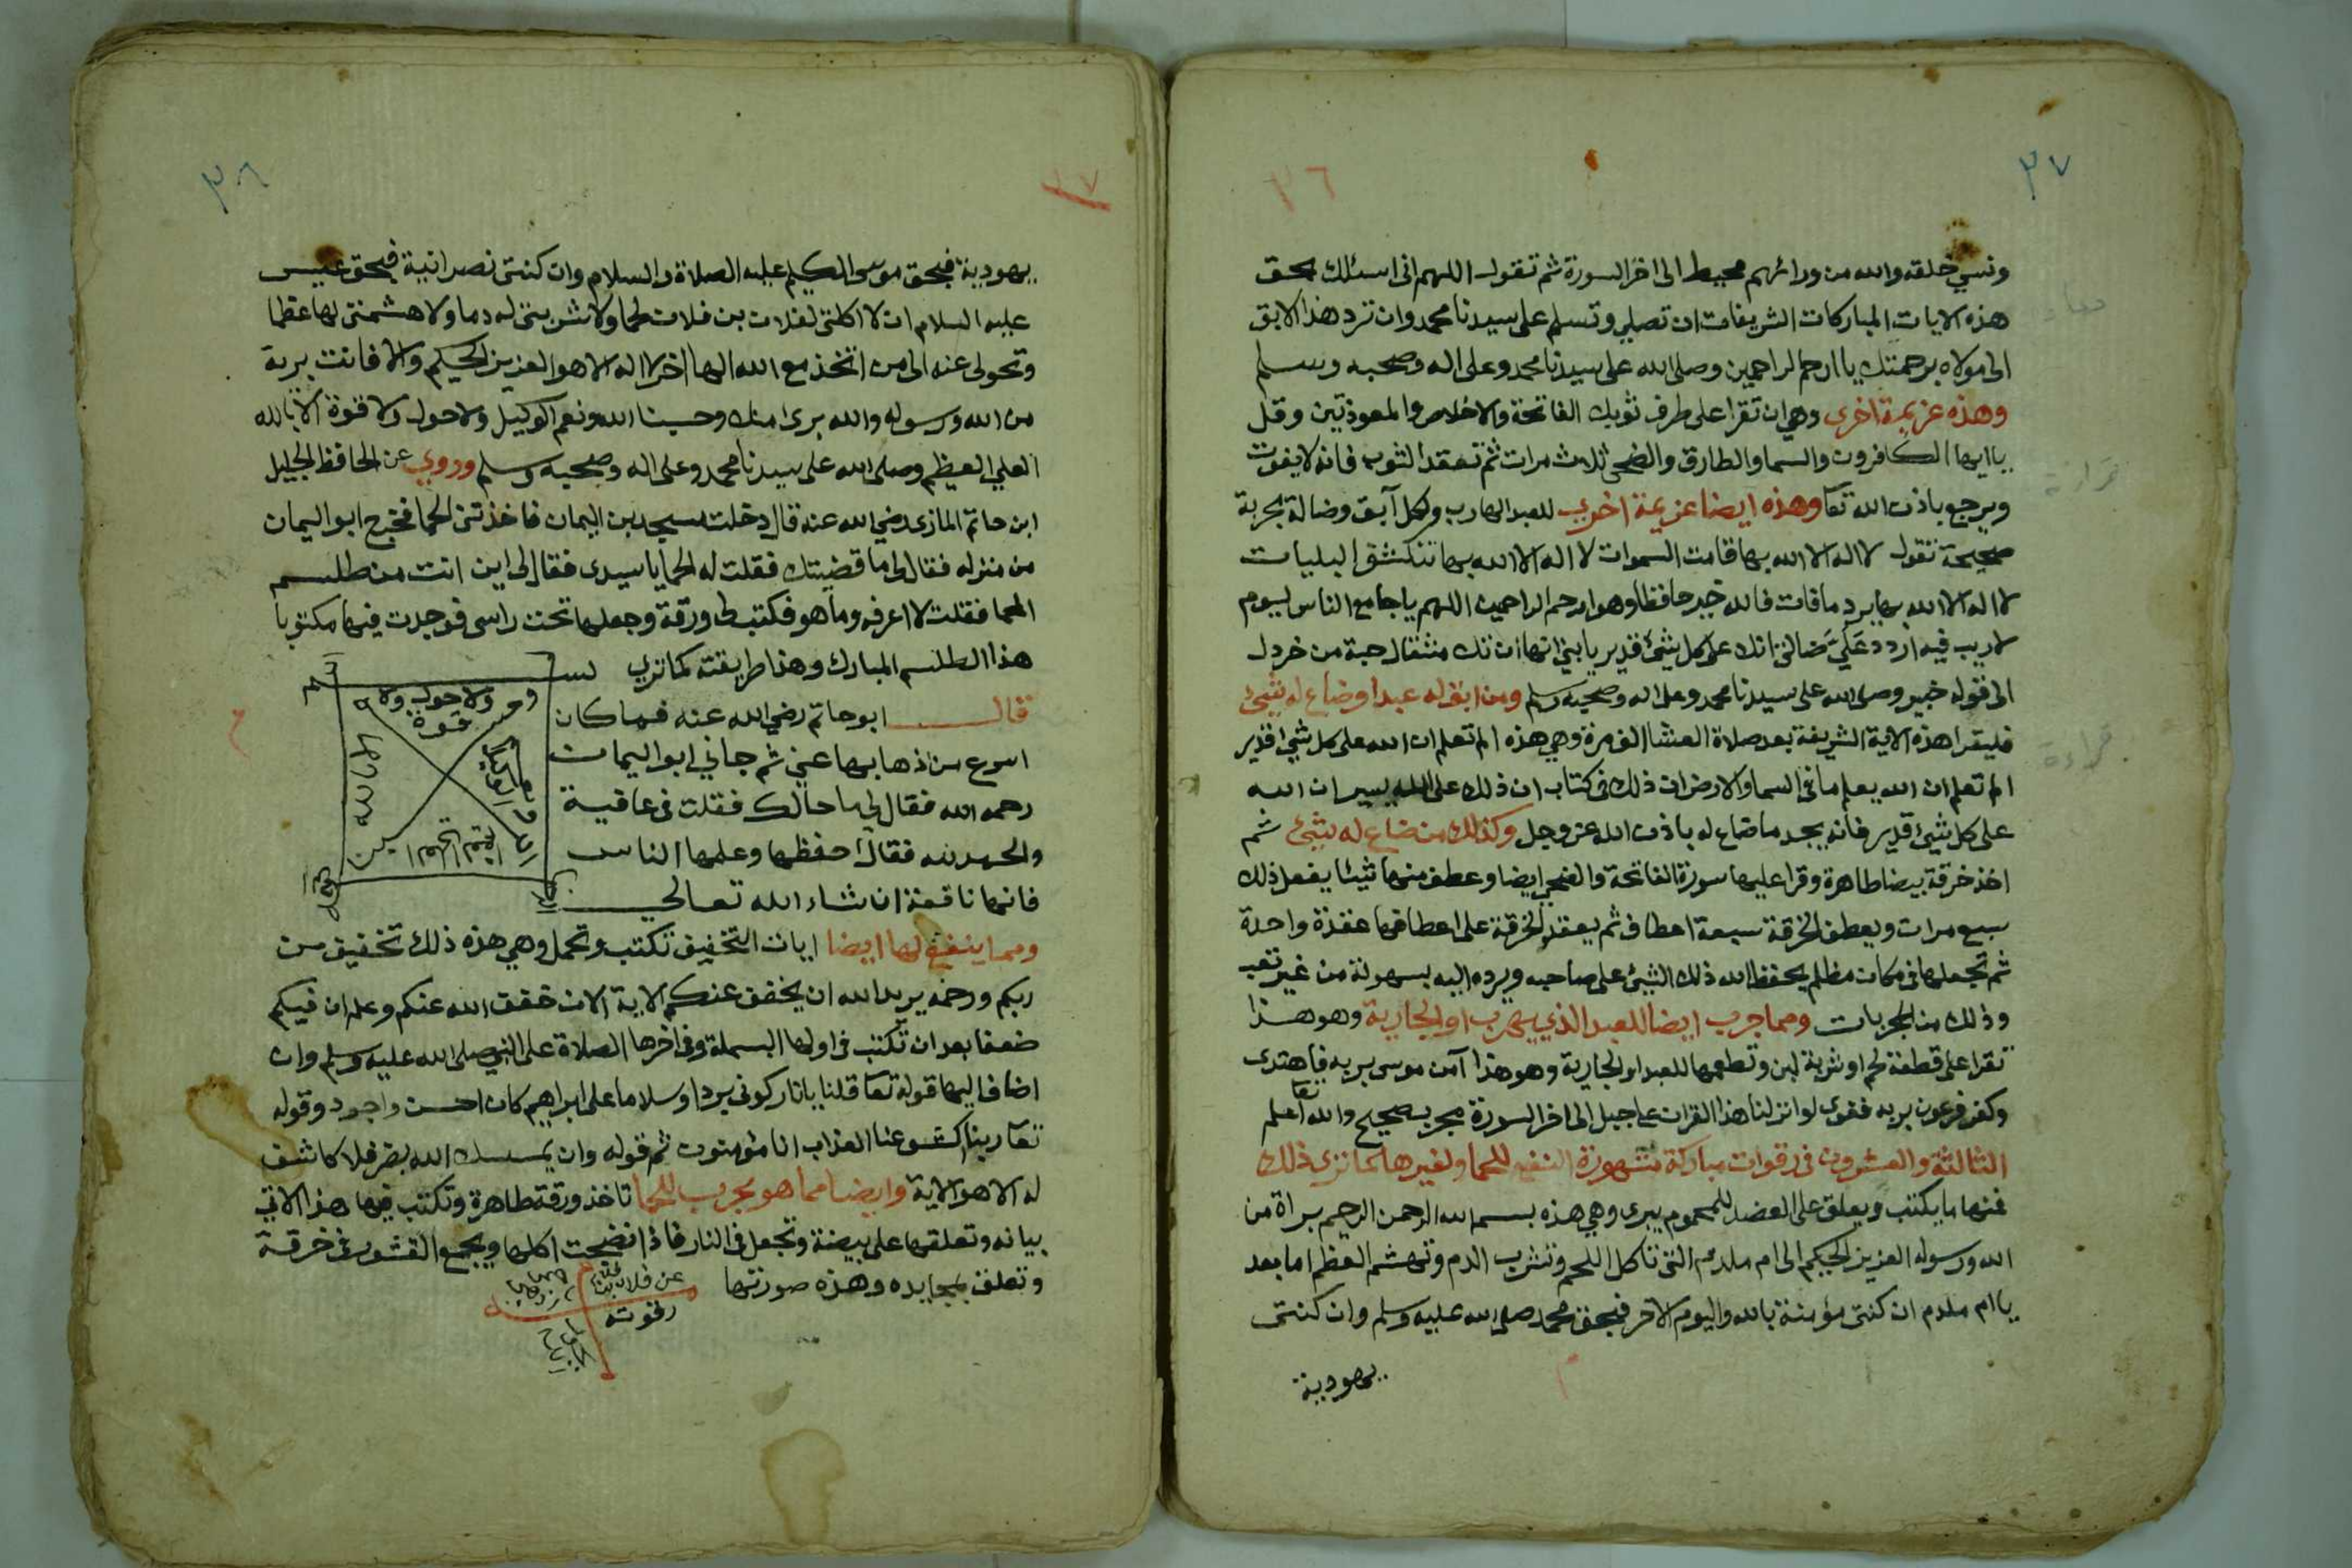 ٣٧
٣٦
ونسي خلقه والله من ورائهم محيط الى اخر السورة ثم تقول اللهم انى اسئلك بحق
هذه الايات المباركات الشريفات ان تصلي وتسلم على سيدنا محمد وان ترد هذا الابق
الى مولاه برحمتك يا ارحم الراحمين وصلى الله على سيدنا محمد وعلى اله وصحبه وسلم
وهذه عزيمة اخرى وهي ان تقرا على طرف ثوبك الفاتحة والاخلاص والمعوذتين وقل
ياايها الكافرون والسما والطارق والضحى ثلاث مرات ثم تعقد الثوب فانه لا يفوت
ويرجع باذن الله تعا وهذه ايضا عزيمة اخرى للعبد الهارب ولكل آبق وضالة مجربة
صحيحة تقول لا اله الا الله بها قامت السموات لا اله الا الله بها تنكشف البليات
لا اله الا الله بها يرد ما فات فالله خير حافظا وهو ارحم الراحمين اللهم يا جامع الناس ليوم
لا ريب فيه اردد عَلَيَّ ضالتى انك على كل شيئ قدير يا بني انها ان تك مثقال حبة من خردل
الى قوله خبير وصلى الله على سيدنا محمد وعلى اله وصحبه وسلم ومن ابق له عبد او ضاع له شيئ
فليقرا هذه الاية الشريفة بعد صلاة العشا الف مرة وهي هذه الم تعلم ان الله على كل شيئ قدير
الم تعلم ان الله يعلم ما فى السما والارض ان ذلك فى كتاب ان ذلك على الله يسير ان الله
على كل شيئ قدير فانه يجد ما ضاع له باذن الله عز وجل وكذلك من ضاع له شيئ ثم
اخذ خرقة بيضا طاهرة وقرا عليها سورة الفاتحة والفجر ايضا وعطف منها شيئا يفعل ذلك
سبع مرات ويعطف الخرقة سبعة اعطاف ثم يعقد الخرقة على اعطافها عقدة واحدة
ثم تجعلها فى مكان مظلم يحفظ الله ذلك الشيئ على صاحبه ويرده اليه بسهولة من غير تعب
وذلك من المجربات ومما جرب ايضا للعبد الذي يهرب او الجارية وهو هذا
تقرا على قطعة لحم او شربة لبن وتطعمها للعبد او الجارية وهو هذا آمن موسى بربه فاهتدى
وكفر فرعون بربه فغوى لو انزلنا هذا القران على جبل الى اخر السورة مجرب صحيح والله تعا اعلم
الثالثة والعشرون فى رقوات مباركة مشهورة النفع للحما ولغيرها كما ترى ذلك
فمنها ما يكتب ويعلق على العضد للمحموم يبرى وهي هذه بسم الله الرحمن الرحيم براة من
الله ورسوله العزيز الحكيم الى ام ملدم التى تاكل اللحم وتشرب الدم وتهشم العظم اما بعد
يا ام ملدم ان كنتى مؤمنة بالله واليوم الاخر فبحق محمد صلى الله عليه وسلم وان كنتى
يهودية
٣٨
٣٧
يهودية فبحق موسى الكليم عليه الصلاة والسلام وان كنتى نصرانية فبحق عيسى
عليه السلام ان لا اكلتى لفلان بن فلان لحما ولا شربتى له دما ولا هشمتى لها عظما
وتحولى عنه الى من اتخذ مع الله الها اخر لا اله الا هو العزيز الحكيم والا فانت برية
من الله ورسوله والله برى منك وحسبنا الله ونعم الوكيل ولا حول ولا قوة الا بالله
العلي العظيم وصلى الله على سيدنا محمد وعلى اله وصحبه وسلم وروي عن الحافظ الجليل
ابن حاتم المازى رضي الله عنه قال دخلت مسجد بن اليمان فاخذتنى الحما فخرج ابو اليمان
من منزله فقال لى ما قضيتك فقلت له الحما يا سيدى فقال لى اين انت من طلسم
الحما فقلت لا اعرفه وما هو فكتب لى ورقة وجعلها تحت راسى فوجدت فيها مكتوبا
هذا الطلسم المبارك وهذا طريقته كما ترى
قال ابو حاتم رضي الله عنه فما كان
اسرع من ذهابها عني ثم جاني ابو اليمان
رحمه الله فقال لى ما حالك فقلت فى عافية
والحمد لله فقال احفظها وعلمها الناس
فانها نافعة ان شاء الله تعالى
ولا حول ولا
قوة
الا بالله
ومما ينفع لها ايضا ايات التخفيف تكتب وتحمل وهي هذه ذلك تخفيف من
ربكم ورحمة يريد الله ان يخفف عنكم الاية الان خفف الله عنكم وعلم ان فيكم
ضعفا بعد ان تكتب فى اولها البسملة وفى اخرها الصلاة على النبي صلى الله عليه وسلم وان
اضاف اليها قوله تعا قلنا يا نار كونى بردا وسلاما على ابراهيم كان احسن واجود وقوله
تعا ربنا اكشف عنا العذاب انا مؤمنون ثم قوله وان يمسسك الله بضر فلا كاشف
له الا هو الاية وايضا مما هو مجرب للحما تاخذ ورقة طاهرة وتكتب فيها هذا الاتي
بيانه وتعلقها على بيضة وتجعل فى النار فاذا نضجت اكلها ويجمع القشور فى خرقة
وتعلق بيده وهذه صورتها